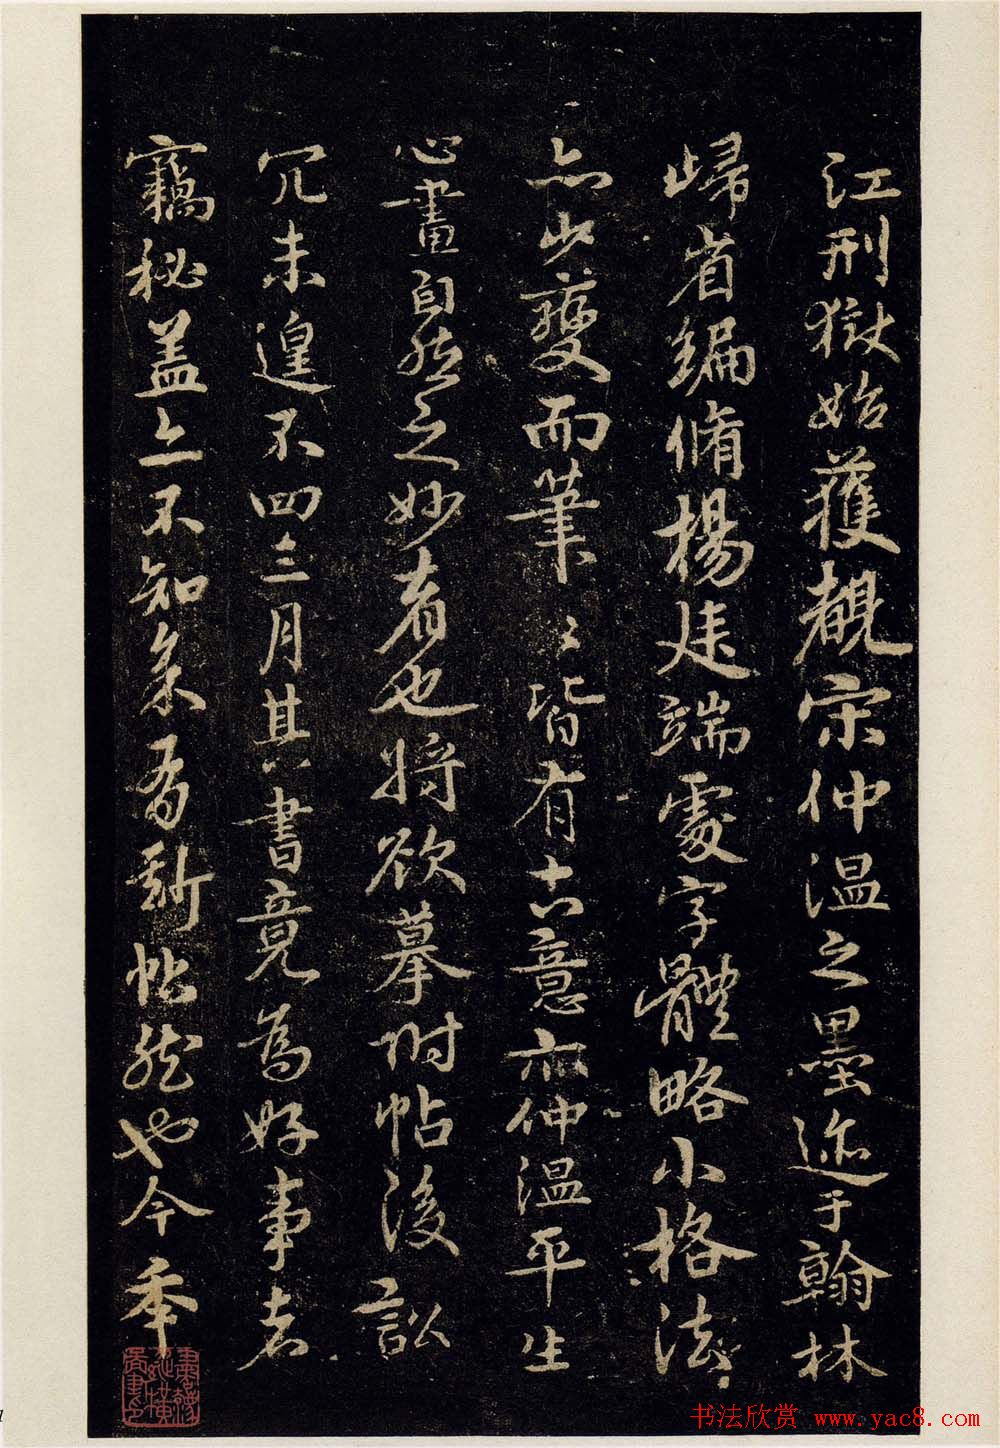 江刑獄始獲覩宋仲温之墨迹于翰林
歸省編脩楊廷端處字體略小格法
亦少變而筆〻皆有古意亦仲温平生
心畫自然之妙者也將欲摹附帖後訟
冗未遑不四三月其書竟為好事者
竊秘蓋亦不知余有新帖然也今年
书法欣赏 www.yac8.com